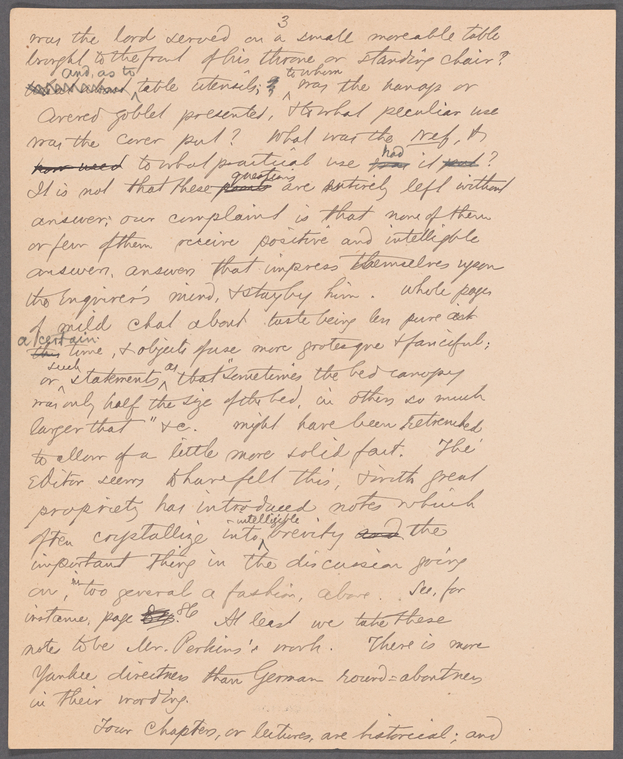 3
was the lord served on a small moveable table
brought to the front of his throne or standing chair?
and, as to
table utensils; to whom was the hanap or
covered goblet presented, & to what peculiar use
was the cover put? What was the nef, &
how used to what practical use had it
It is not that these points questions are entirely left without
answer; our complaint is that none of them
or few of them receive positive and intelligible
answers, answers that impress themselves upon
the Enquirer's mind, & stay by him. Whole pages
of mild chat about taste being less pure at
a certain
this time, & objects of use more grotesque & fanciful;
or such statements as that "sometimes the bed canopy
was only half the size of the bed, in others so much
larger that" &c. might have been retrenched
to allow of a little more solid fact. The
Editor seems to have felt this, & with great
propriety has introduced notes which
often crystallize into intelligible brevity and the
important thing in the discussion going
on, in too general a fashion, above. See, for
instance, page 86. At least we take these
notes to be Mr. Perkins's work. There is more
Yankee directness than German round=aboutness
in their wording.
Four Chapters, or lectures, are historical; and